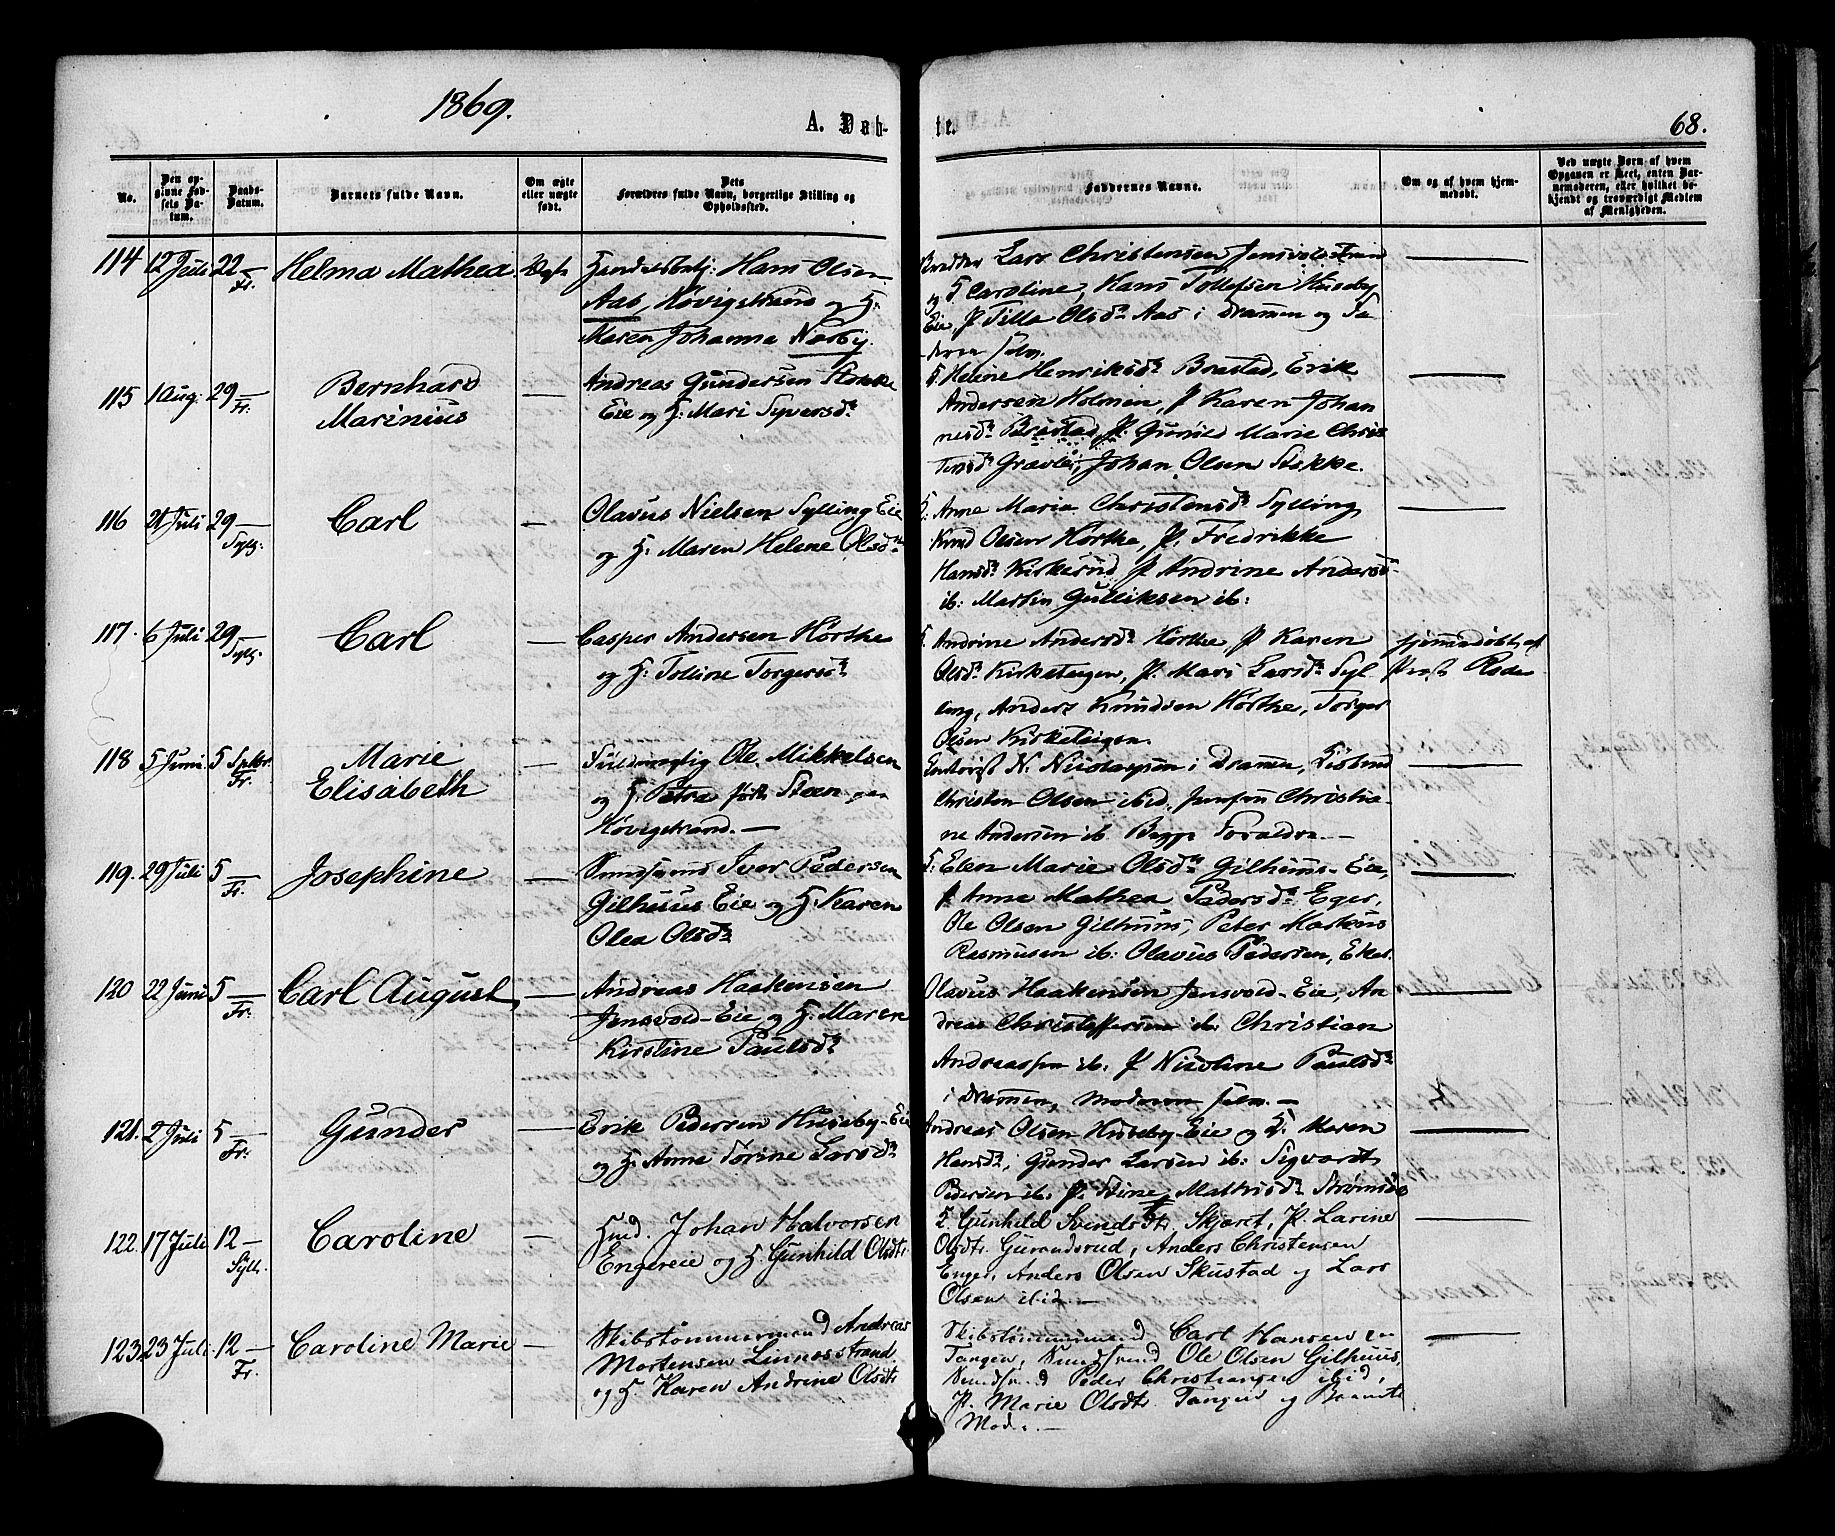 1869.
A. Døb-
te.
68.
No.
Den op-
givne Fød-
sels Da-
tum.
Daabs-
Datum.
Barnets fulde Navn.
Om ægte
eller uægte
født.
Dets
Forældres fulde Navn, borgerlige Stilling og
Opholdssted.
Faddernes Navne.
Om og af hvem hjem-
medøbt.
Ved uægte Børn af hvem
Opgaven er skeet, enten Bar-
nemoderen, eller hvilket be-
kjendt og troværdigt Medlem
af Menigheden.
114 12 Juli 22 — Fr. Helma Mathea Ægte
Handelsbetj: Hans Olsen
Aas, Høvigstrand og H:
Maren Johanna Narby.
Lars Christensen Jensvold
og H Caroline, Hans Tollefsen Huseby
Eie, P Tilla Olsdr Aas i Drammen og Fa-
deren selv.
115 1 Aug: 29 — Fr. Bernhard
Marinius
Andreas Gundersen Stokke
Eie og H: Mari Syversdr
H. Helene Henriksdr Brastad, Erik
Andersen Holmen, P Karen Johan
nesdr Brastad, P: Gunild Marie Chris
tensdr Grævlie, Johan Olsen Stokke.
116 21 Juli 29 — Sylg: Carl
Olavus Nielsen Sylling Eie
og H: Maren Helene Olsdr
H. Anne Maria Christensdr Sylling,
Knud Olsen Hørthe, P. Fredrikke
Hansdr Kirkerud, P Andrine Andersdr
ib: Martin Gulliksen ib:
117. 6 Juli 29 — Sylg: Carl
Casper Andersen Hørthe
og H:Olline Torgersdr
H. Andrine Andersdr Hørthe, P Karen
Olsdr Kirketeigen, P. Mari Larsdr Syl
ling, Anders Knudsen Hørthe, Torger
Olsen Kirketeigen.
hjemmedøbt af
Prost Rode
118 5 Juni. 5 Septbr. Fr. Marie
Elisabeth
Fuldmægtig Ole Mikkelsen
og H. Petra født Steen paa
Høvigstrand. —
N. Nicolaysen i Drammen,
Christen Olsen ibid, Jomfru Christia-
ne Andersen ib Begge Forældre. —
119. 29 Juli 5 — Fr. Josephine
Iver Pedersen
Gilhuus Eie og H. Karen
Olea Olsdr
H: Elen Marie Olsdr Gilhuus-Eie,
P Anne Mathea Pedersdr Eger,
Ole Olsen Gilhuus, Peter Markus
Rasmusen ib: Olavus Pedersen, Eker.
120 22 Juni 5 — Fr. Carl August
Andreas Haakensen
Jensvold-Eie og H. Maren
Kirstine Paulsdr
Olavus Haakensen Jensvold-Eie, An
dreas Christoffersen ib. Christian
Andreassen ib. P Nicoline Paulsdr
i Drammen, Moderen selv. —
121. 2 Juli 5 — Fr. Gunder
Erik Pedersen Huseby-Eie
og H. Anne Torine Larsdr
Andreas Olsen Huseby-Eie og H. Maren
Hansdr, Gunder Larsen ib: Sigvardt
Pedersen ib. P. Stine Mathisdr Strømsøe
122. 17 Juli 12 — Syll. Caroline
Hmd. Johan Halvorsen
Engereie og H. Gunhild Olsdtr
H. Gunhild Svendsdtr. Skjæret, P. Larine
Olsdtr. Gurandsrud, Anders Christensen
Enger, Anders Olsen Skustad og Lars
Olsen ibid. —
123. 23 Juli 12 — Fr. Caroline Marie
Skibstømmermand Andreas
Mortensen Linnæsstrand
og H. Karen Andrine Olsdtr
Skibstømmermand Carl Hansen
Tangen, Ole Olsen Gilhuus,
Peder Christiansen ibid,
P. Marie Olsdtr. Tangen og Barnets
Mod. —